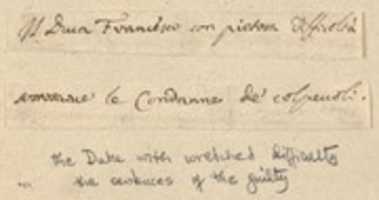 Il Duca Francesco con pietosa difficoltà
le Condanne de' colpevoli.
the Duke with wretched difficulty
the sentences of the guilty